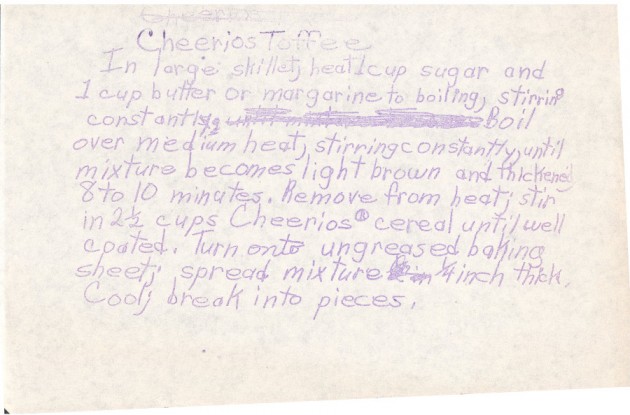 Cheerios
Cheerios Toffee
In large skillet, heat 1 cup sugar and
1 cup butter or margarine to boiling, stirring
constantly. Boil
over medium heat, stirring constantly, until
mixture becomes light brown and thickened
8 to 10 minutes. Remove from heat; stir
in 2½ cups Cheerios® cereal until well
coated. Turn onto ungreased baking
sheet; spread mixture ¼ inch thick.
Cool; break into pieces.